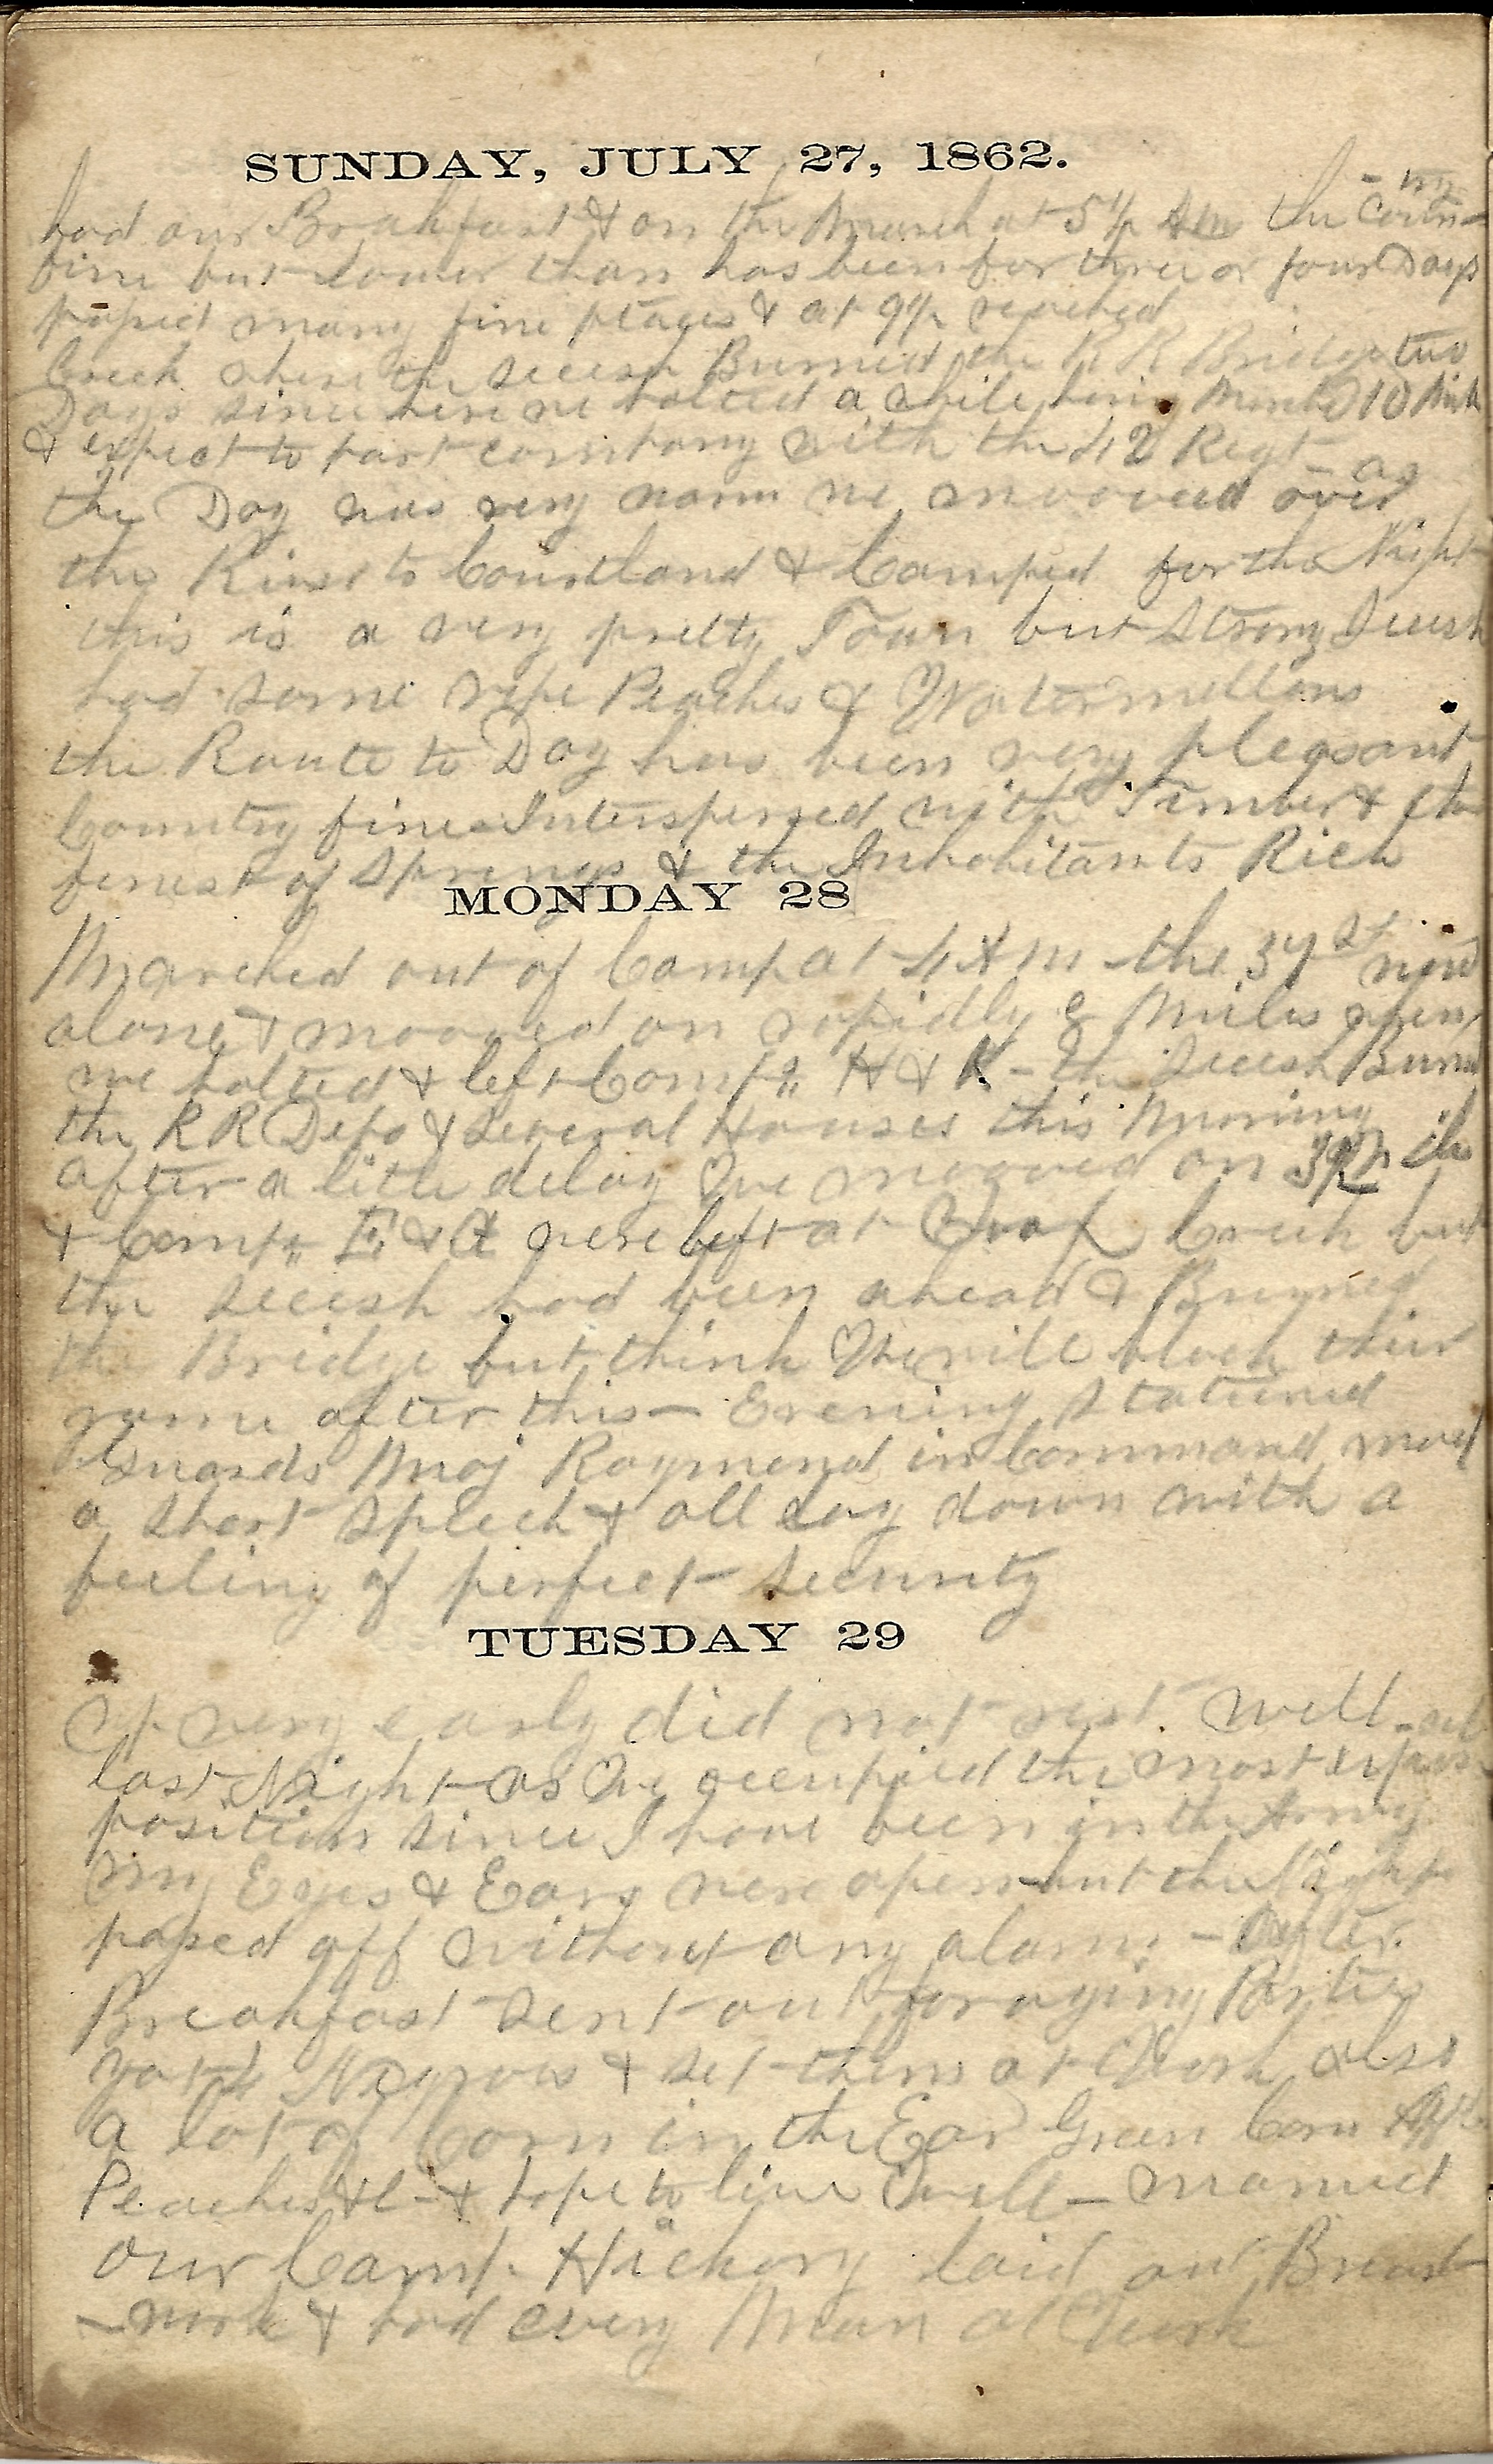 SUNDAY, JULY 27, 1862.
had our Brakfast & on the March at 5½ AM the
fine but lower than has been for three or four Days
passed many fine places & at 9½ reached
Creek where the secesh Burned the RR Bridge two
Days since here we halted a while having Marched 10 Mils
& expect to part company with the 42 Regt - as
the Day was very warm we mooved over
the River to Courtland & Camped for the Night
this is a very pretty Town but Strong Secesh
had some ripe Peaches & Watermellons
the Route to Day has been very pleasant
Country fine Interspersed with Timber & the
finest of Springs & the Inhabitants Rich
MONDAY 28
Marched out of Camp at 4 AM - the 37st now
alone & mooved on rapidly Miles when
we halted & left Comps H & K - the Secesh Burned
the RR Depo & several Houses this Morning
after a litle delay We mooved on
& Comps E & A were left at Creek but
the secesh had been ahead & Burned
the Bridge but think We will block their
game after this - Evening Stationed
Guards Maj Raymond in Command made
a short speech & all lay down with a
feeling of perfect security
TUESDAY 29
up very early did not rest well
last Night as We occupied the most
position since I have been in the Army
my Eyes & Ears were open but the Night
passed off without any alarm - After
Breakfast sent out foraging Parties
got Negroes & set them at Work also
a lot of Corn in the Ear Green Corn
Peaches &c - & hope to live Well - named
our Camp Hickory laid out Breast
-work & had every Man at Work